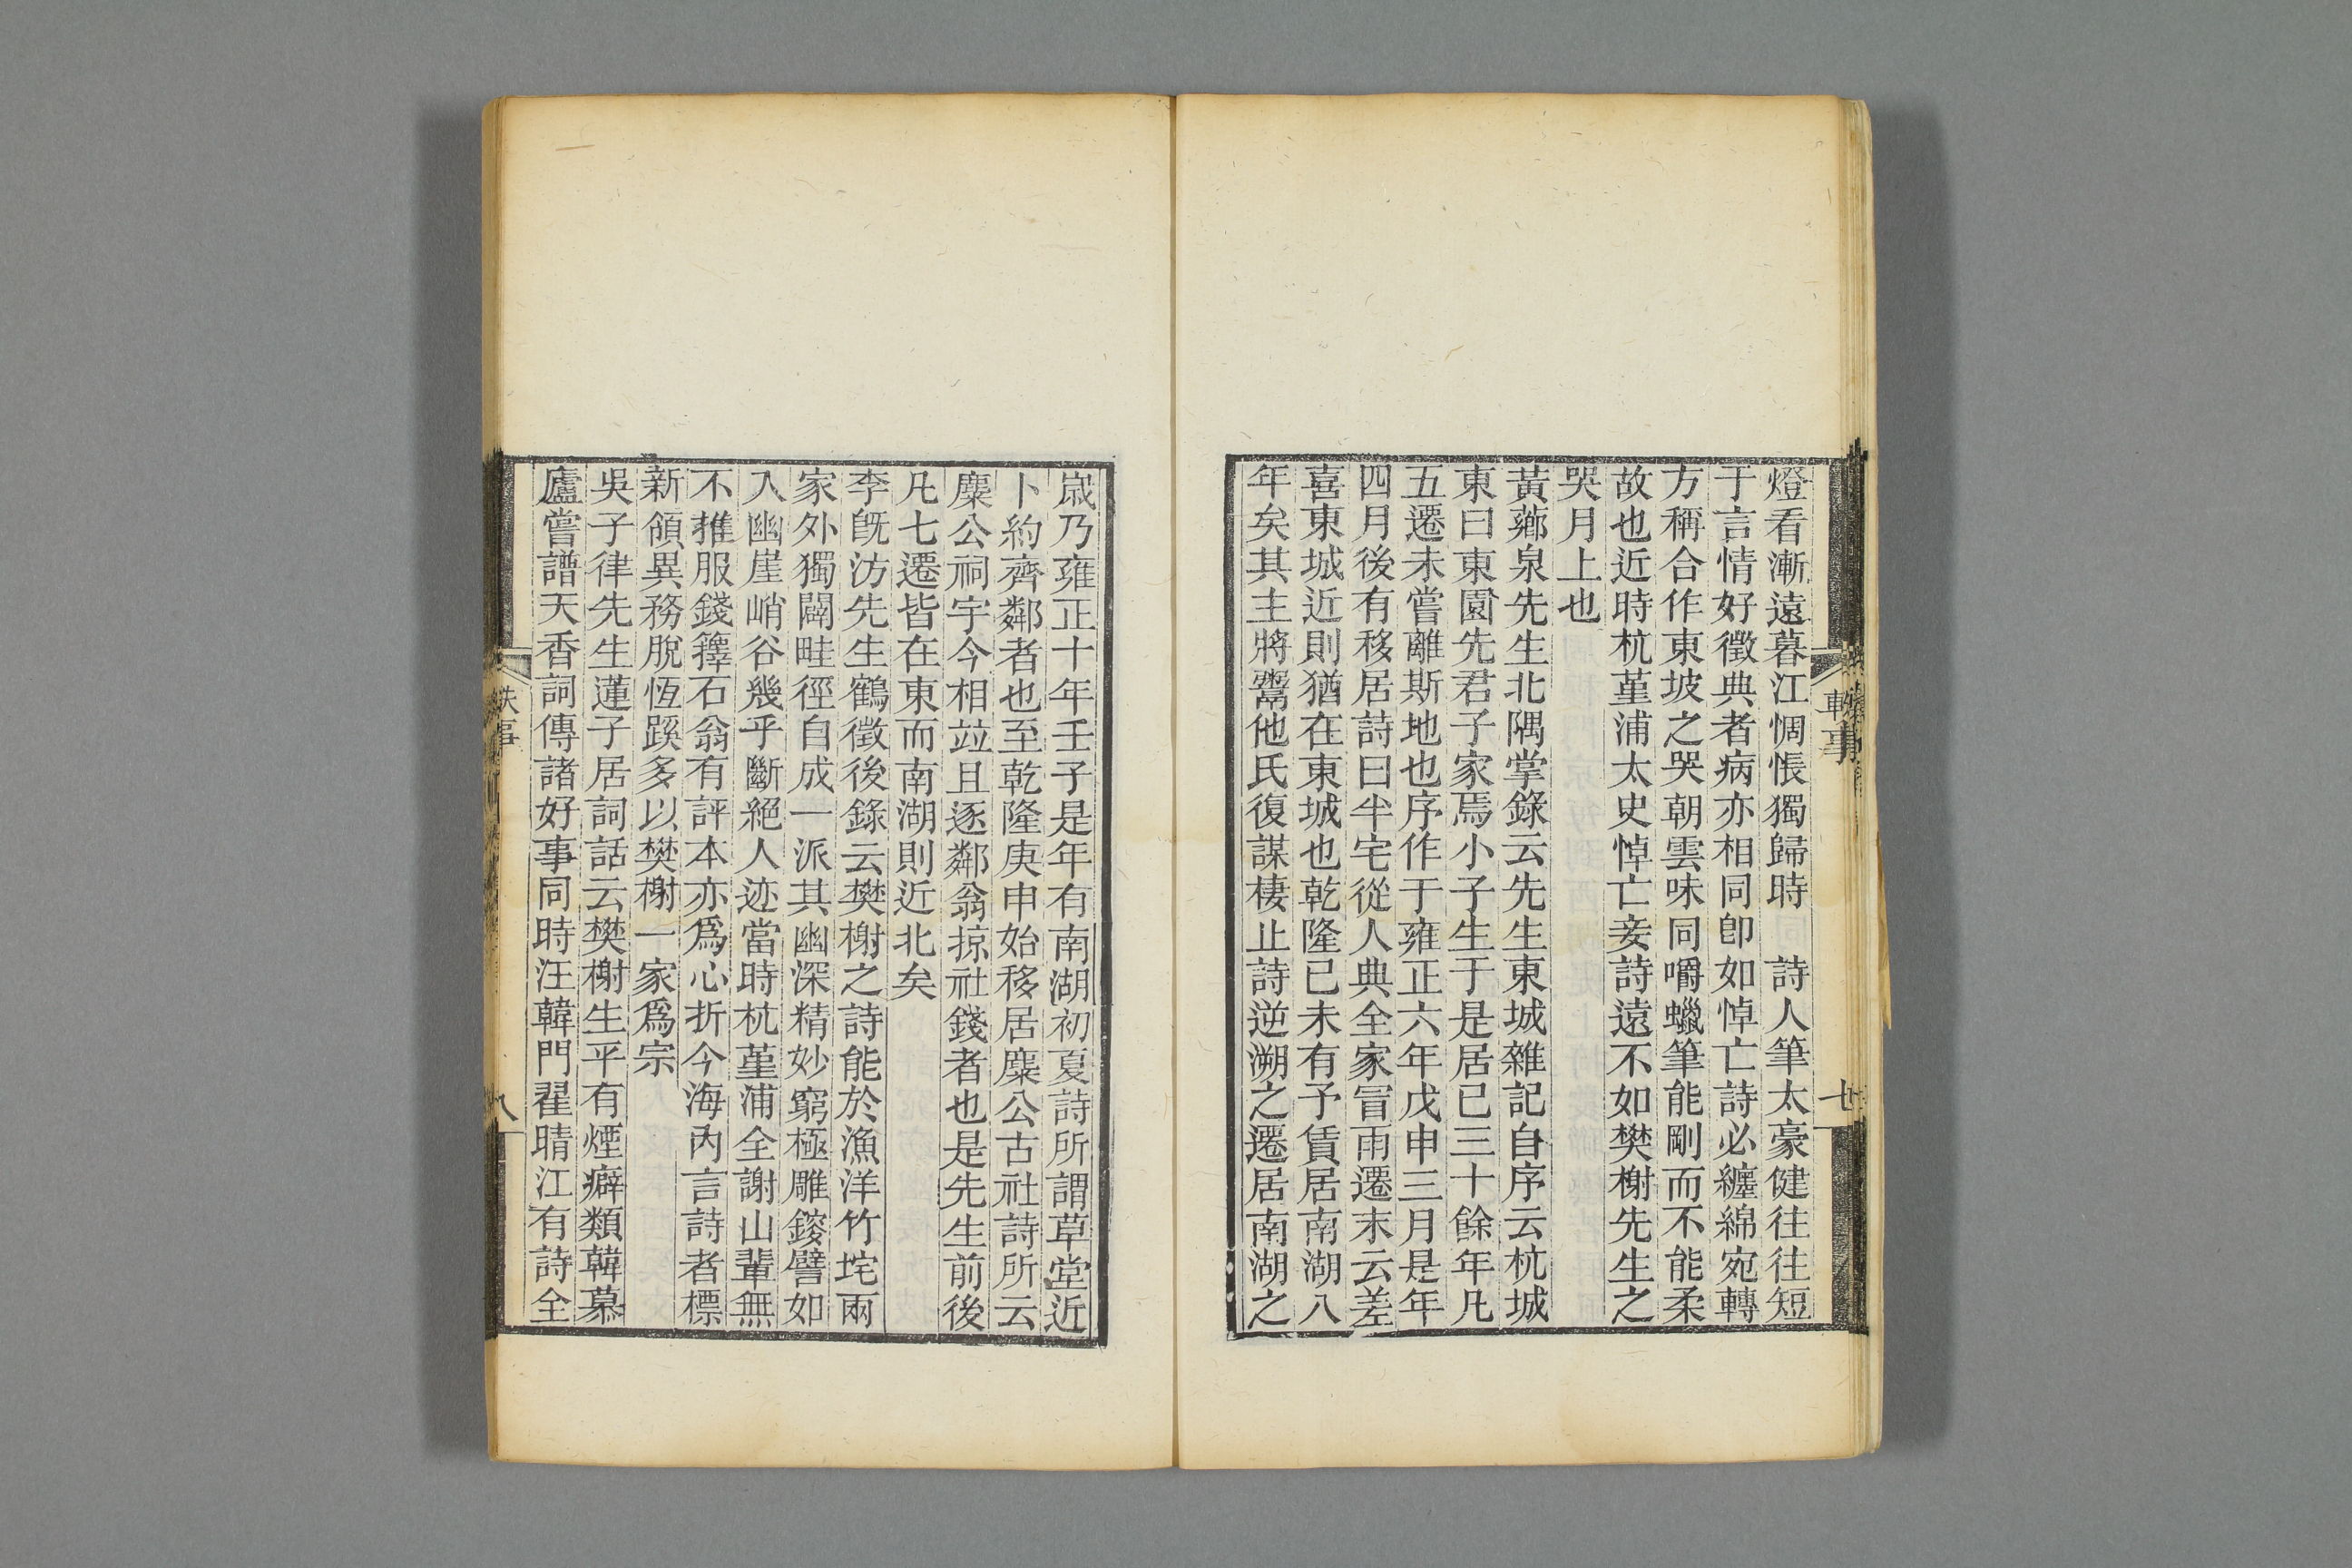 燈看漸遠暮江惆悵獨歸時　詩人筆太豪健往往短
于言情好徵典者病亦相同卽如悼亡詩必纏綿宛轉
方稱合作東坡之哭朝雲味同嚼蠟筆能剛而不能柔
故也近時杭堇浦太史悼亡妾詩遠不如樊榭先生之
哭月上也
黃薌泉先生北隅掌錄云先生東城雜記自序云杭城
東曰東園先君子家焉小子生于是居已三十餘年凡
五遷未嘗離斯地也序作于雍正六年戊申三月是年
四月後有移居詩曰半宅從人典全家冒雨遷末云差
喜東城近則猶在東城也乾隆已未有予賃居南湖八
年矣其主將鬻他氏復謀棲止詩逆溯之遷居南湖之
歲乃雍正十年壬子是年有南湖初夏詩所謂草堂近
卜約齋鄰者也至乾隆庚申始移居麋公古社詩所云
麋公祠宇今相竝且逐鄰翁掠社錢者也是先生前後
凡七遷皆在東而南湖則近北矣
李旣汸先生鶴徵後錄云樊榭之詩能於漁洋竹垞兩
家外獨闢畦徑自成一派其幽深精妙窮極雕鎪譬如
入幽崖峭谷幾乎斷絕人迹當時杭堇浦全謝山輩無
不推服錢籜石翁有評本亦爲心折今海內言詩者標
新領異務脫恆蹊多以樊榭一家爲宗
吳子律先生蓮子居詞話云樊榭生平有煙癖類韓慕
廬嘗譜天香詞傳諸好事同時汪韓門翟晴江有詩全
軼事
七
軼事
八